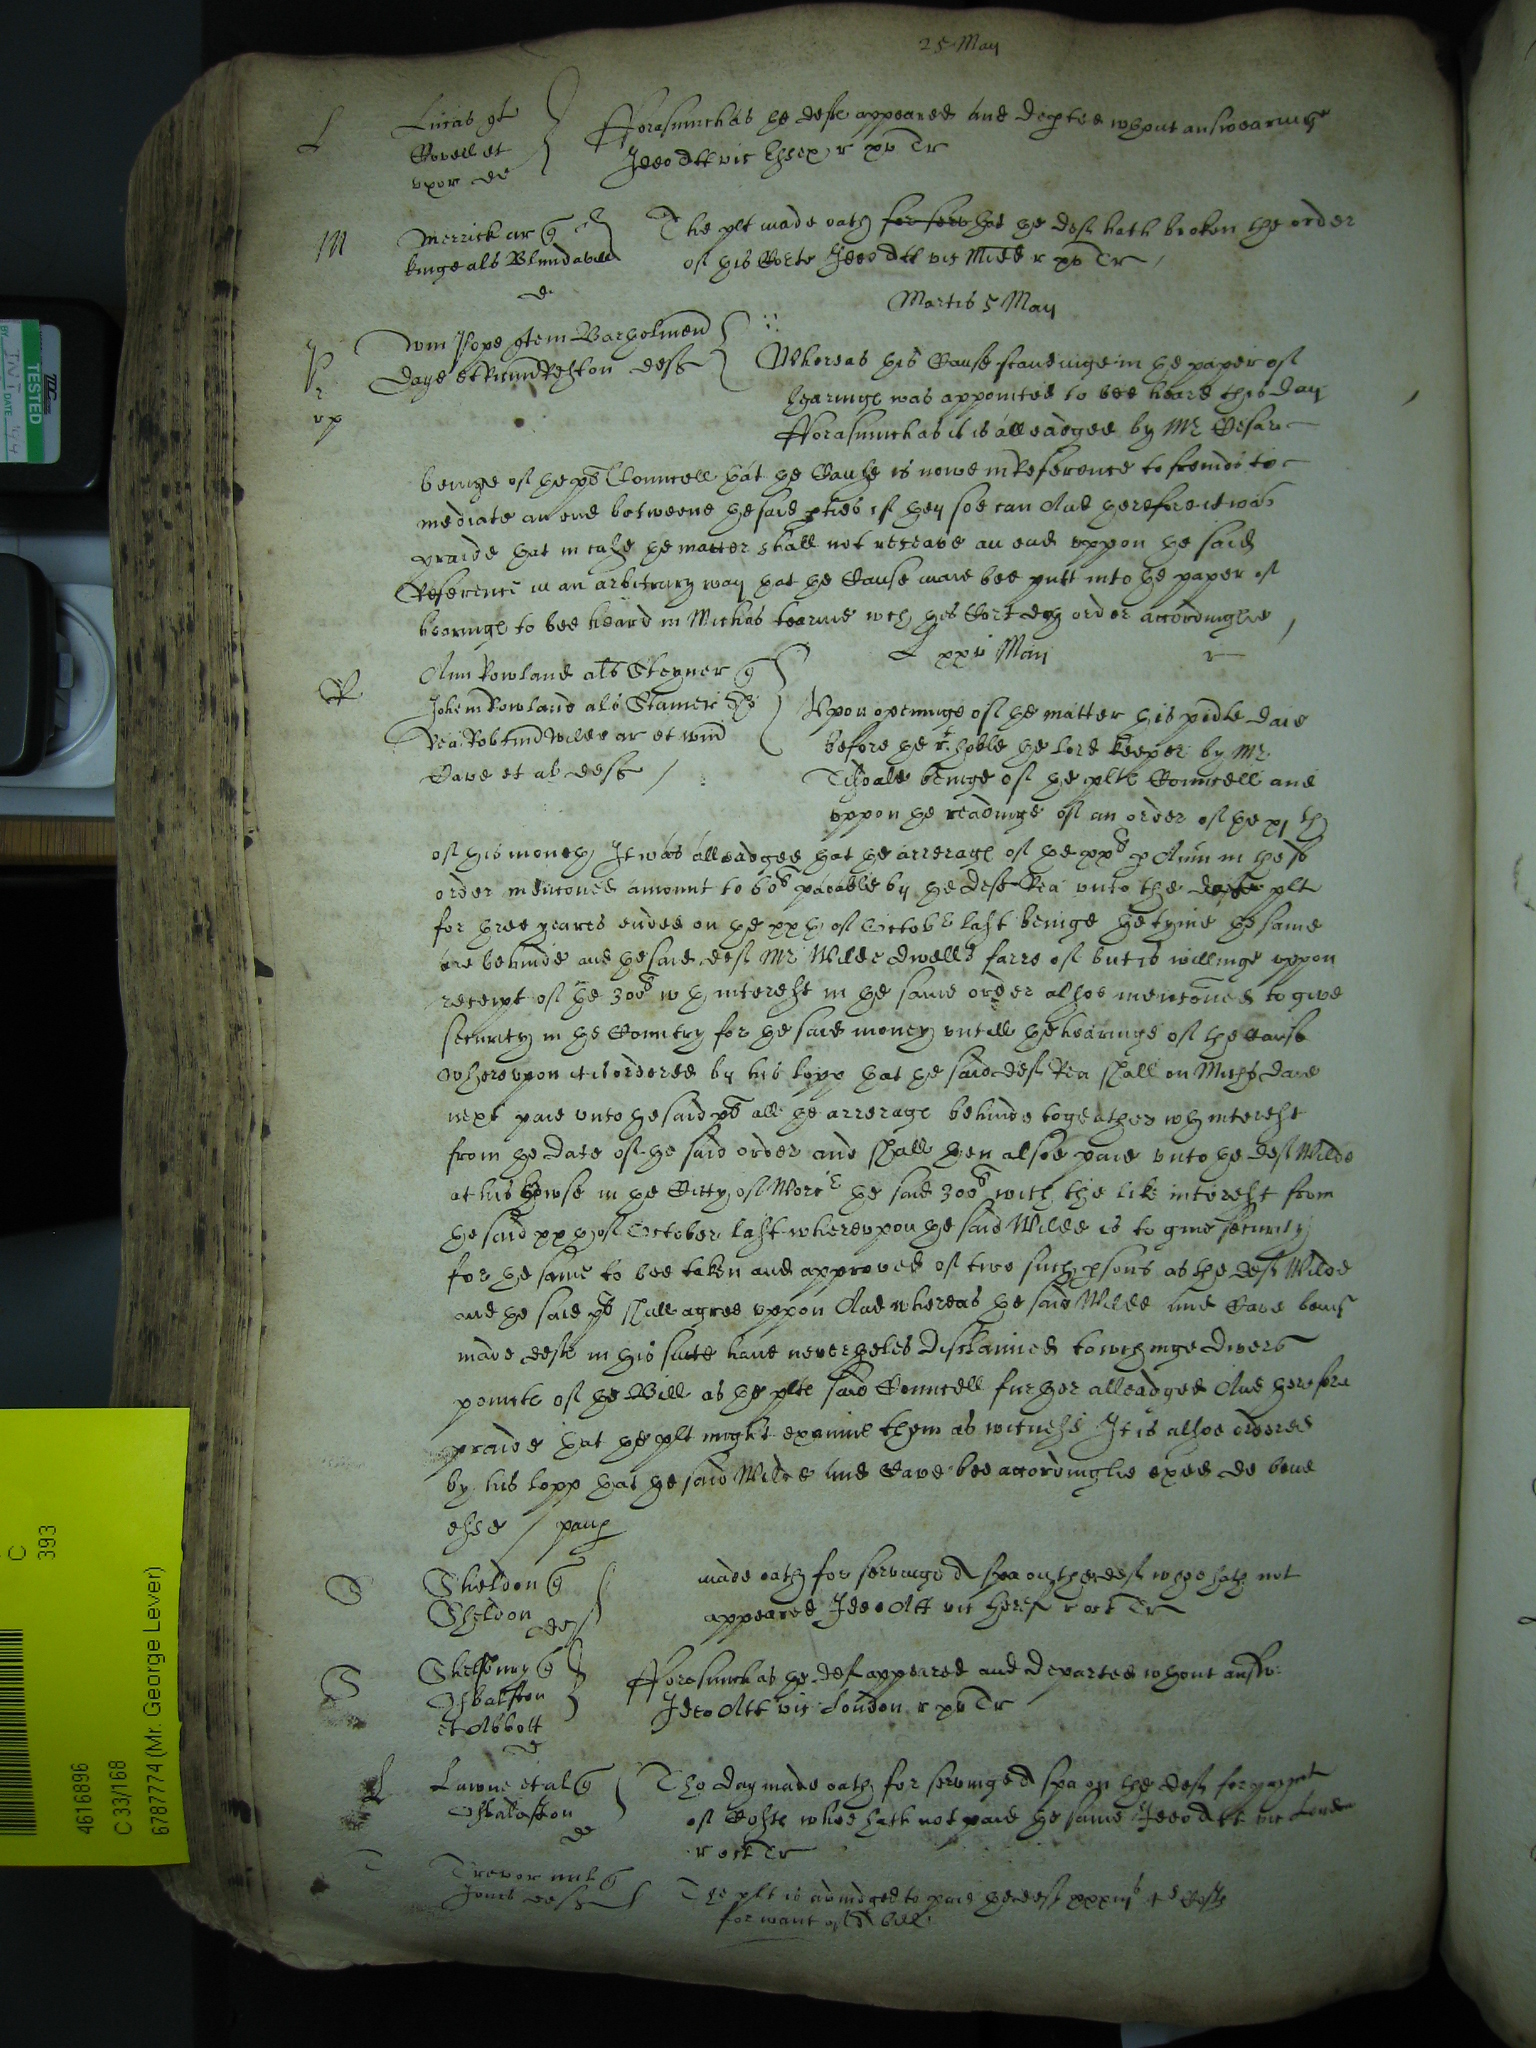 25 May
L
Lucas q
Covell et
uxor de
Forasmuch as the deft appeared and depted wthout answearinge
Ideo Att vic Essex r xv Tr
M
Merrick ar q
Kinge als Blundavill
d
The plt made oath for serv that the deft hath broken the order
of this Corte Ideo Att vic Midd r xv Tr
Martis 5 May
P
r
xp
Wm Pope
Daye et defts
Whereas this Cause standinge in the paper of
hearinge was appointed to bee heard this day
Forasmuch as it is alleadged by Mr Cesar
beinge of the pts Councell that the Cause is nowe in Reference to frends to
mediate an end betweene the said pties if they soe can And therefore it was
praide that in case the matter shall not receave an end uppon the said
Reference in an arbitrary way that the Cause maie bee putt into the paper of
hearinge to bee heard in Michas tearme wch this Cort doth order accordinglie
xxv May
R
Ann Rowland als Steyner q
John Rowland als Stainer
Rea Wilde ar et Wm
Cave et al defts
Uppon openinge of the matter this pnte daie
before the r. hoble the lord Keeper by Mr
Tisdale beinge of the plts Councell and
uppon the readinge of an order of the xj th
of this moneth It was alleadged that the arrerage of the xxs p Ann in the sd
order mencioned amount to 60s paiable by the deft Rea unto the plt
for three yeares ended on the xxth of October last beinge the tyme the same
are behinde and the said deft Mr Wilde dwells farre of but is willinge uppon
receipt of the 300s wth interest in the same order alsoe mencioned to give
security in the Country for the said money untill the hearinge of the Cause
Whereupon it is ordered by his lopp that the said deft Rea shall on Michs daie
next paie unto the said pt all the arrerage behinde togeather wth interest
from the date of the said order and shall then alsoe paie unto the deft Wilde
at his howse in the Citty of Worc the said 300s with the like interest from
the said xxth of October last whereupon the said Wilde is to give security
for the same to bee taken and approved of two such psons as the deft Wilde
and the said pt shall agree uppon And whereas the said Wilde and Cave beinge
made defts in this suite have nevertheles disclaimed towchinge divers
points of the Bill as the plts said Councell further alleadged And therefore
praide that the plt might examine them as witness It is alsoe ordered
by his lopp that the said Wilde and Cave bee accordinglie exed de bene
esse / paup
S
Sheldon q
Sheldon deft
made oath for servinge A spa on the deft whoe hath not
appeared Ideo Att vic heref r oct Tr
S
q
et Abbott
d
Forasmuch as the deft appeared and departed wthout answ:
Ideo Att vic London r xv Tr
L
Lawne et al q
de
Tho Day made oath for servinge A spa on the deft for paymt
of Costs whoe hath not paid the same Ideo Att vic London
r oct Tr
T
Trevor mil q
Jones deft
The plt is adiudged to paie the deft xxxiijs 4d Costs
for want of A bill
TESTED
DATE
C
393
4616896
C 33/168
6787774 (Mr. George Lever)